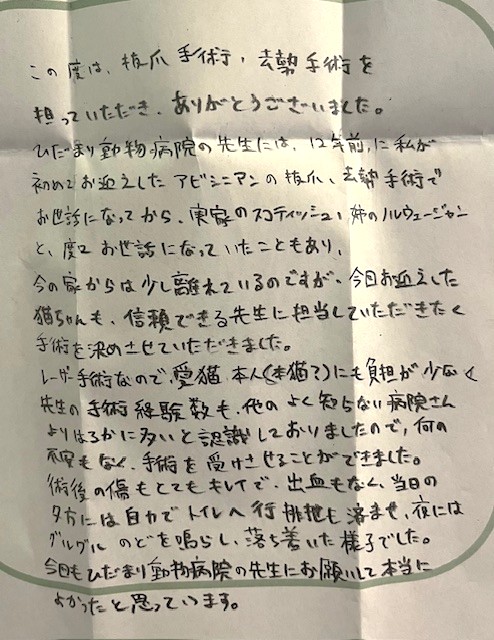 この度は、抜爪手術、去勢手術を
担っていただき、ありがとうございました。
ひだまり動物病院の先生には、12年前に私が
初めてお迎えしたアビシニアンの抜爪、去勢手術で
お世話になってから、実家のスコティッシュ、姉のノルウェージャン
と、度々お世話になっていたこともあり、
今の家からは少し離れているのですが、今回お迎えした
猫ちゃんも、信頼できる先生に担当していただきたく
手術を決めさせていただきました。
レーザー手術なので愛猫本人(本猫?)にも負担が少なく
先生の手術経験数も、他のよく知らない病院さん
よりはるかに多いと認識しておりましたので、何の
不安もなく、手術を受けさせることができました。
術後の傷もとてもキレイで、出血もなく、当日の
夕方には自力でトイレへ行 排泄も済ませ、夜には
グルグルのどを鳴らし、落ち着いた様子でした。
今回もひだまり動物病院の先生にお願いして本当に
よかったと思っています。